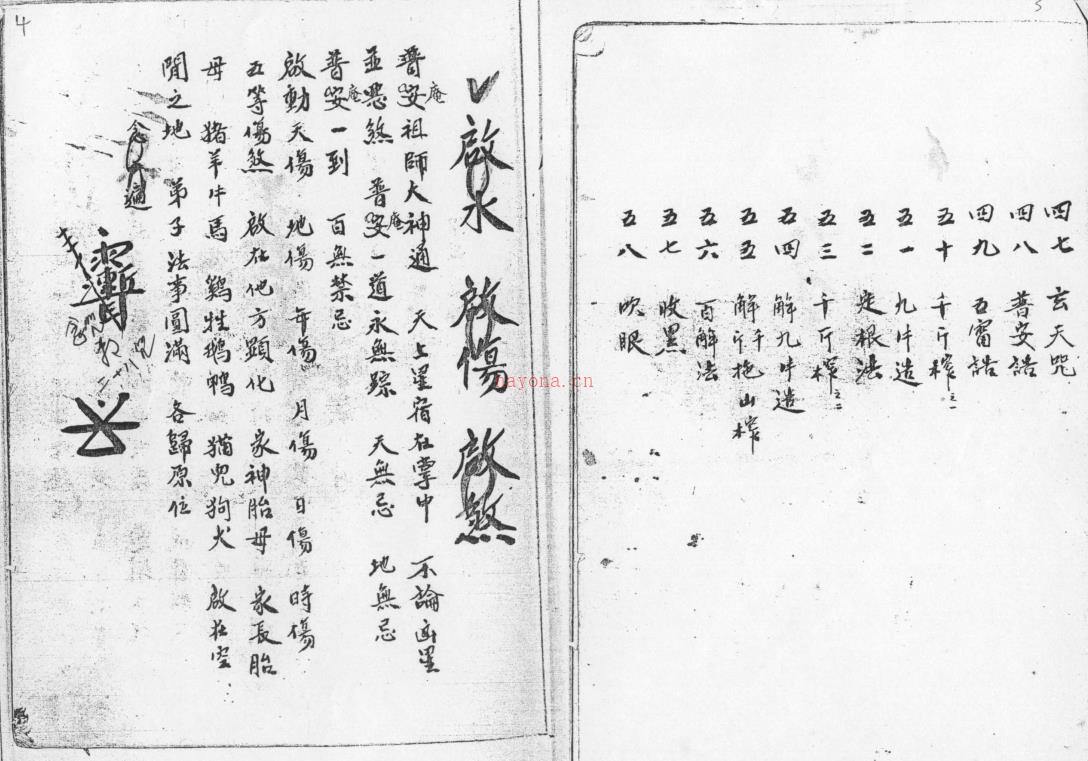 3
四七 玄天咒
四八 普安誥
四九 五雷誥
五十 千斤榨之一
五一 九牛造
五二 定根法
五三 千斤榨之二
五四 解九牛造
五五 解千斤拖山榨
五六 百解法
五七 收黑
五八 吹眼
4
啟水 啟傷 啟煞
普安庵祖師大神通 天上星宿在掌中 不論凶星
並惡煞 普安庵一道永無踪 天無忌 地無忌
普安庵一到 百無禁忌
啟動天傷 地傷 年傷 月傷 日傷 時傷
五等傷煞 啟在他方顯化 家神胎母 家長胎
母 猪羊牛馬 鷄牲鵝鸭 猫兒狗犬 啟在空
閒之地 弟子法事圓滿 各歸原位
念 遍
nayona.cn